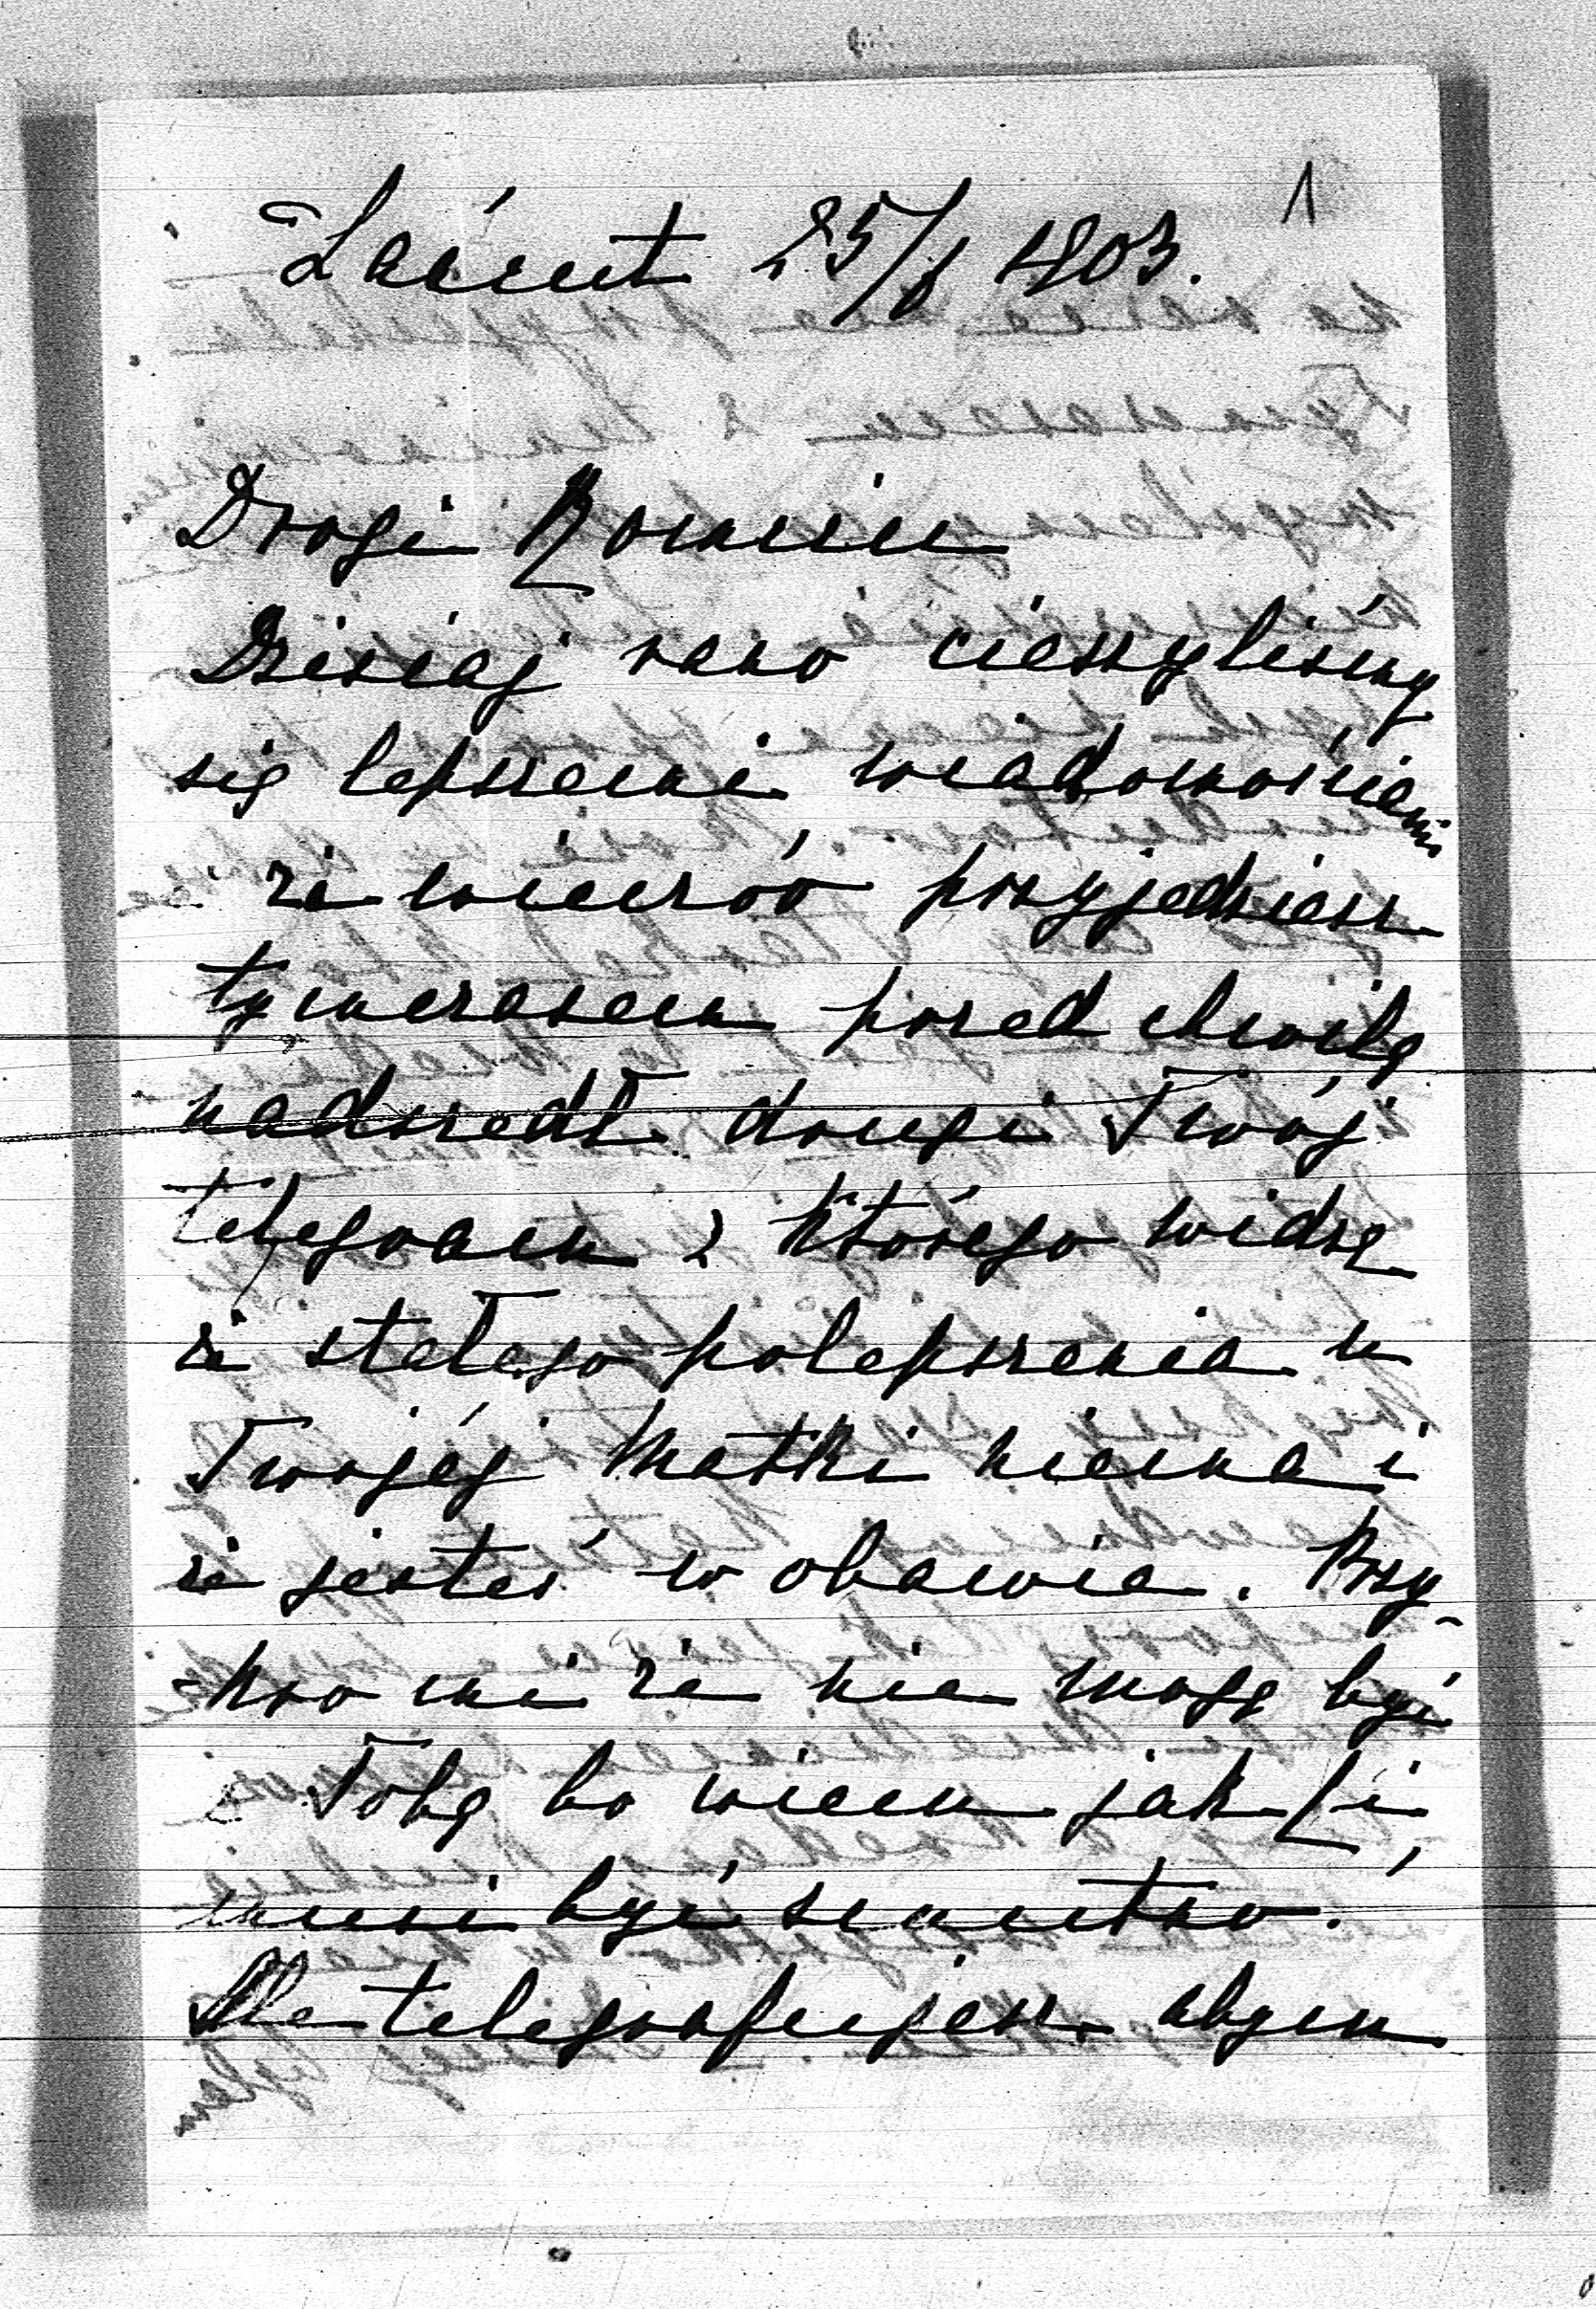 1
Łańcut 25/8 1903.
Drogi Romciu
Dzisiaj rano cieszyliśmy
się lepszemi wiadomościami
że wieczór przyjedziesz
tymczasem przed chwilą
nadszedł drugi Twój
telegram z którego widzę
że stałego polepszenia u
Twojéj Matki niema i
że jesteś w obawie. Przy-
-kro mi że nie mogę być
z Tobą bo wiem jak Ci
musi być smutno.
Ale telegrafujesz abym